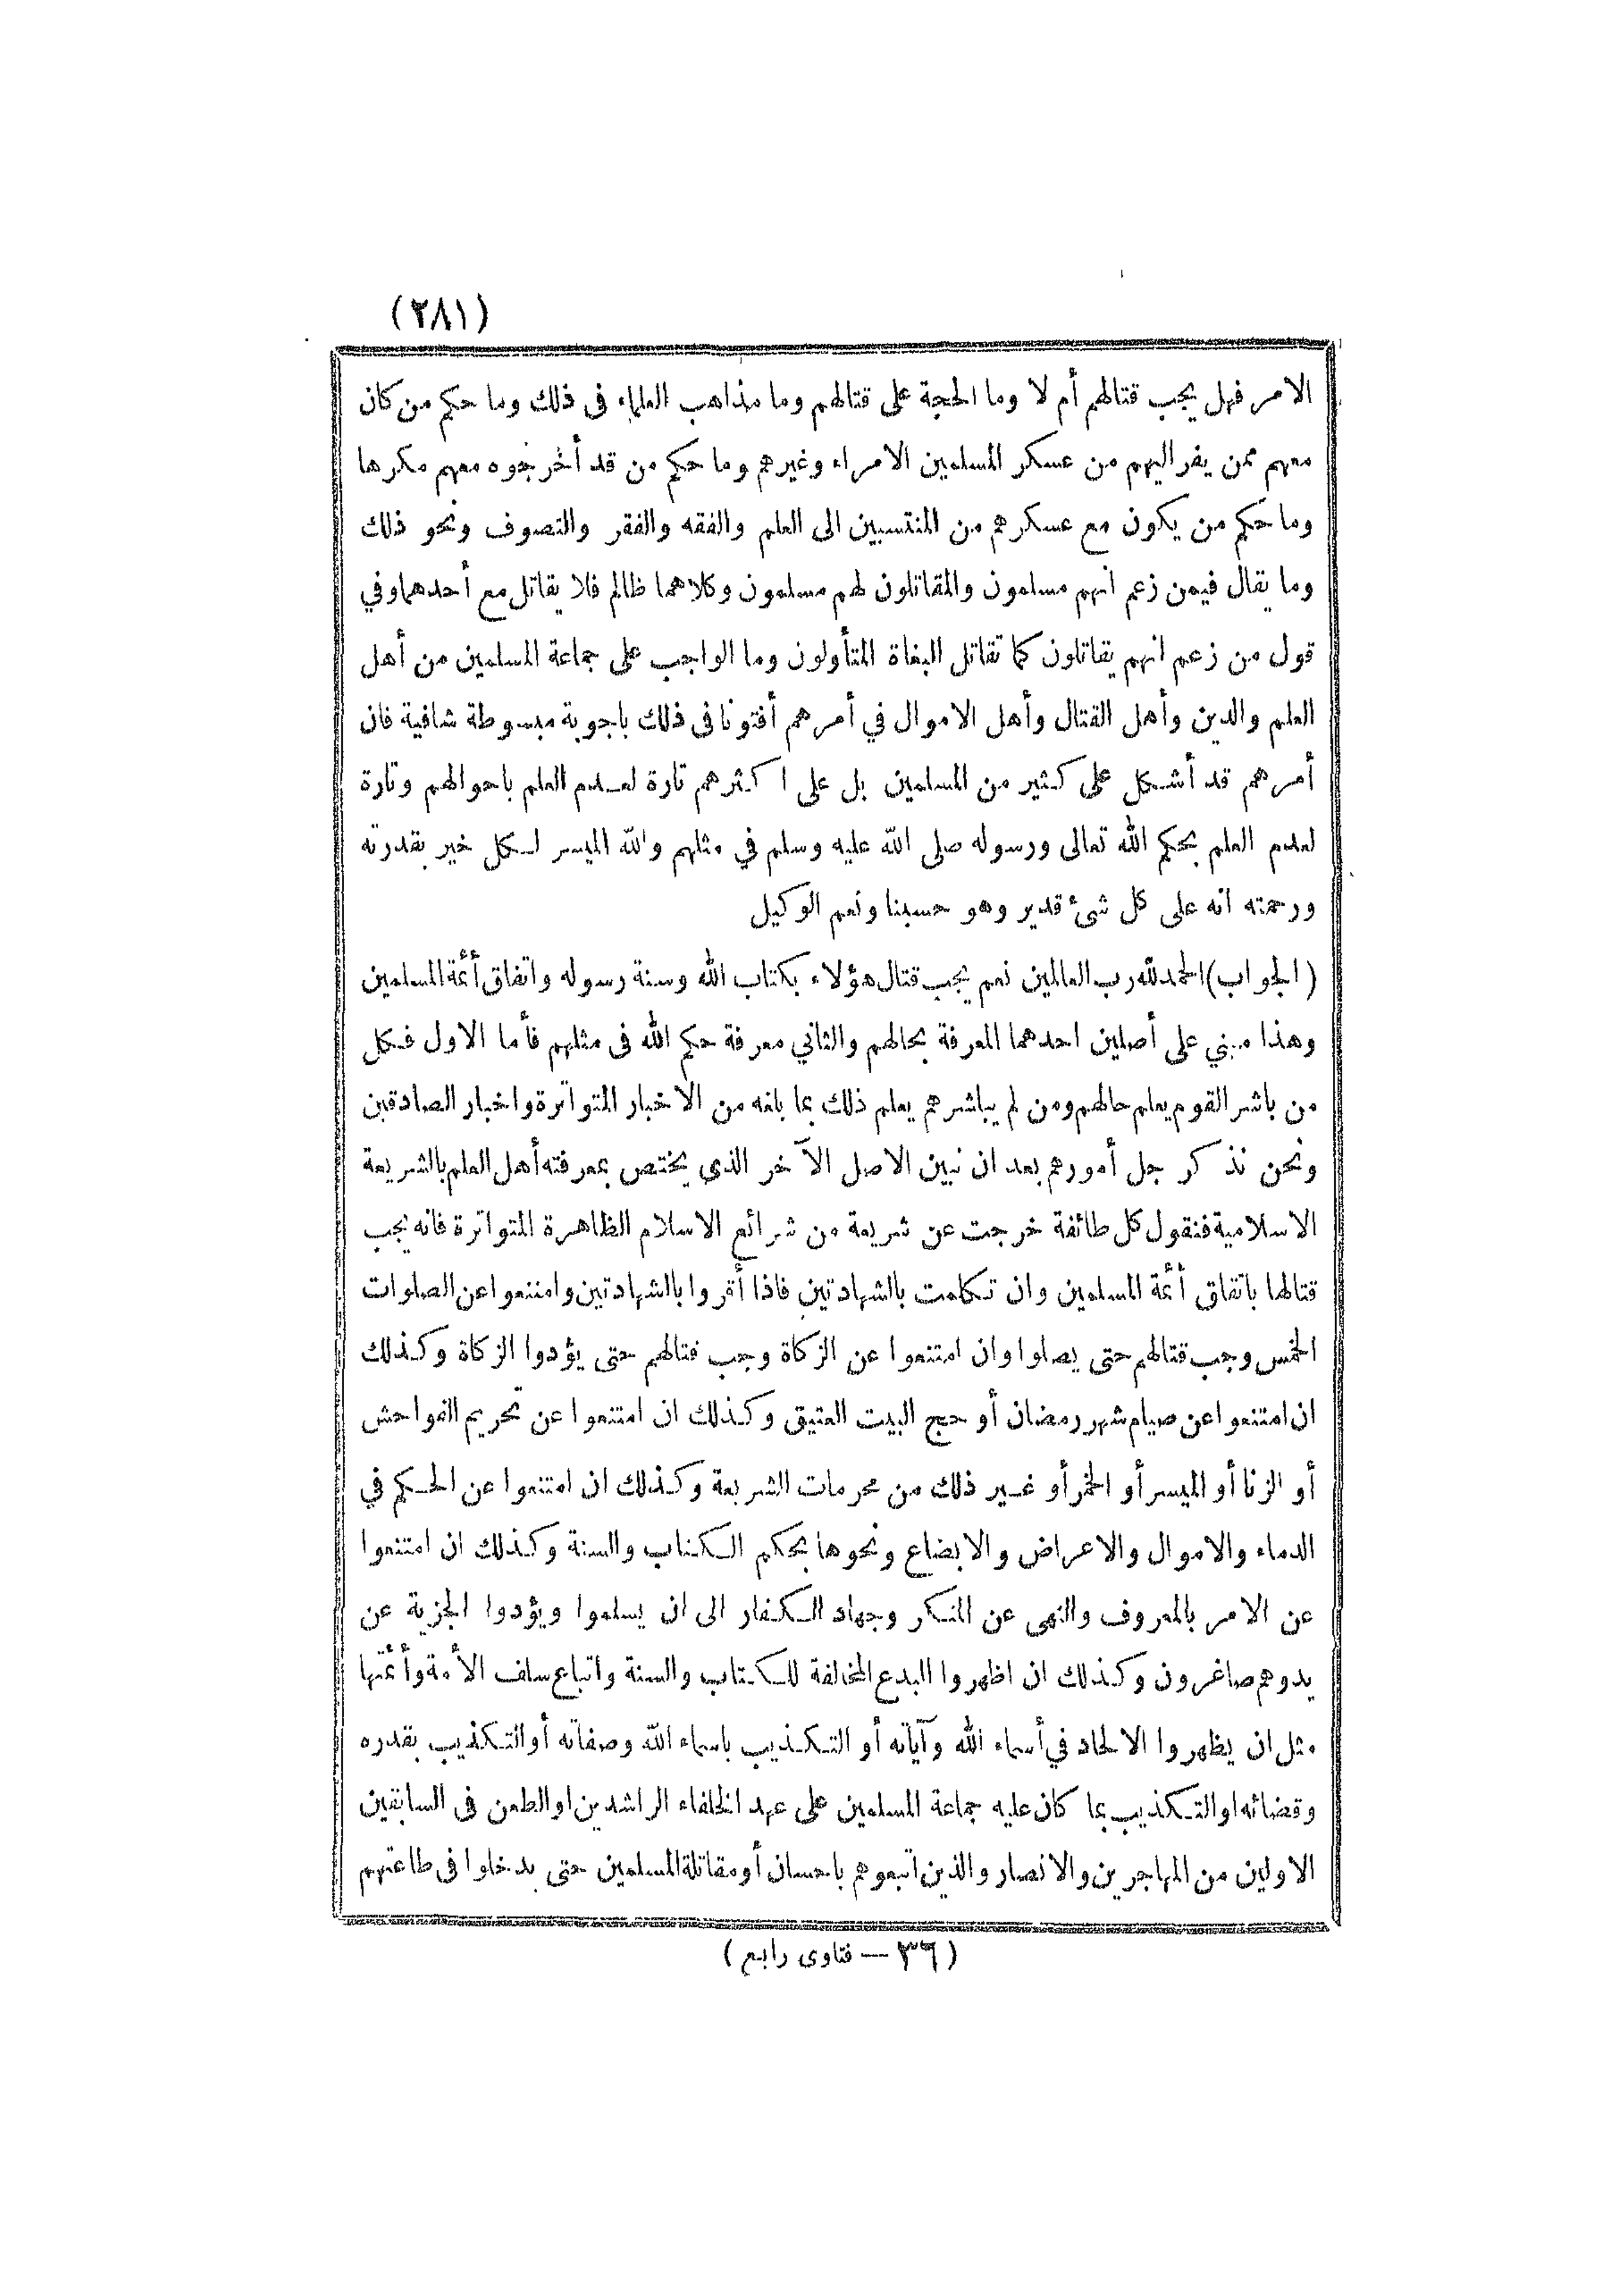 (٢٨١)
الامر فهل يجب قتالهم أم لا وما الحجة على قتالهم وما مذاهب العلماء فى ذلك وما حكم من كان
معهم ممن يفر اليهم من عسكر المسلمين الامراء وغيرهم وما حكم من قد أخرجوه معهم مكرها
وما حكم من يكون مع عسكرهم من المنتسبين الى العلم والفقه والفقر والتصوف ونحو ذلك
وما يقال فيمن زعم انهم مسلمون والمقاتلون لهم مسلمون وكلاهما ظالم فلا يقاتل مع أحدهما وفي
قول من زعم انهم يقاتلون كما تقاتل البغاة المتأولون وما الواجب على جماعة المسلمين من أهل
العلم والدين وأهل القتال وأهل الاموال في أمرهم أفتونا فى ذلك باجوبة مبسوطة شافية فان
أمرهم قد أشكل على كثير من المسلمين بل على اكثرهم تارة لعدم العلم باحوالهم وتارة
لعدم العلم بحكم الله تعالى ورسوله صلى الله عليه وسلم في مثلهم والله الميسر لكل خير بقدرته
ورحمته انه على كل شئ قدير وهو حسبنا ونعم الوكيل
(الجواب) الحمد لله رب العالمين نعم يجب قتال هؤلاء بكتاب الله وسنة رسوله واتفاق أئمة المسلمين
وهذا مبني على أصلين احدهما المعرفة بحالهم والثاني معرفة حكم الله فى مثلهم فأما الاول فكل
من باشر القوم يعلم حالهم ومن لم يباشرهم يعلم ذلك بما بلغه من الاخبار المتواترة واخبار الصادقين
ونحن نذكر جل أمورهم بعد ان نبين الاصل الآخر الذى يختص بمعرفته أهل العلم بالشريعة
الاسلامية فنقول كل طائفة خرجت عن شريعة من شرائع الاسلام الظاهرة المتواترة فانه يجب
قتالها باتفاق أئمة المسلمين وان تكلمت بالشهادتين فاذا أقروا بالشهادتين وامتنعوا عن الصلوات
الخمس وجب قتالهم حتى يصلوا وان امتنعوا عن الزكاة وجب قتالهم حتى يؤدوا الزكاة وكذلك
ان امتنعوا عن صيام شهر رمضان أو حج البيت العتيق وكذلك ان امتنعوا عن تحريم الفواحش
أو الزنا أو الميسر أو الخمر أو غير ذلك من محرمات الشريعة وكذلك ان امتنعوا عن الحكم في
الدماء والاموال والاعراض والابضاع ونحوها بحكم الكتاب والسنة وكذلك ان امتنعوا
عن الامر بالمعروف والنهى عن المنكر وجهاد الكفار الى ان يسلموا ويؤدوا الجزية عن
يدوهم صاغرون وكذلك ان اظهروا البدع المخالفة للكتاب والسنة واتباع سلف الأمة وأئمتها
مثل ان يظهروا الالحاد في أسماء الله وآياته أو التكذيب باسماء الله وصفاته أو التكذيب بقدره
وقضائه او التكذيب بما كان عليه جماعة المسلمين على عهد الخلفاء الراشدين او الطعن فى السابقين
الاولين من المهاجرين والانصار والذين اتبعوهم باحسان أو مقاتلة المسلمين حتى يدخلوا فى طاعتهم
(٣٦ — فتاوى رابع)